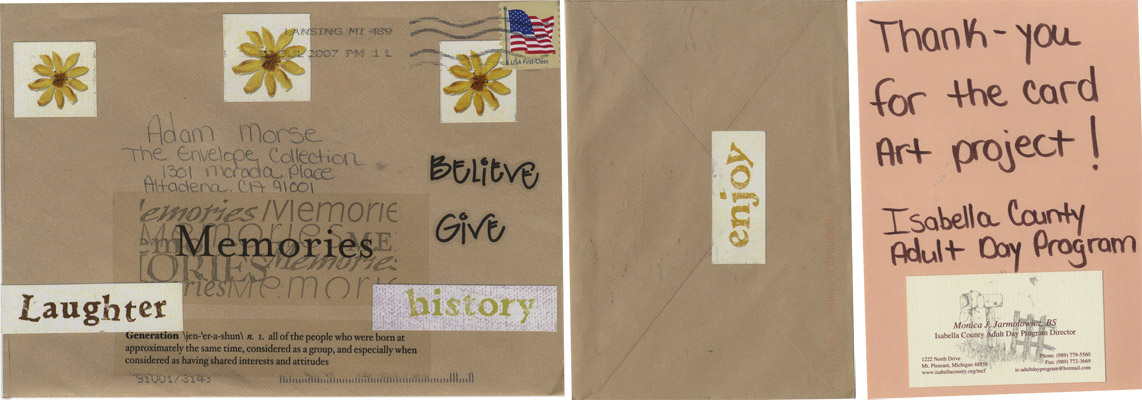 LANSING MI 489
JUL 2007 PM 1 L
USA First-Class
Adam Morse
The Envelope Collection
1301 Morada Place
Altadena, CA 91001
BELIEVE
GIVE
Memories
Laughter
history
Generation \jen-'er-a-shun\ n. 1. all of the people who were born at
approximately the same time, considered as a group, and especially when
considered as having shared interests and attitudes
91001/3143
enjoy
Thank-you
for the card
Art project!
Isabella County
Adult Day Program
Monica J. Jarmolowicz, BS
Isabella County Adult Day Program Director
1222 North Drive
Mt. Pleasant, Michigan 48858
www.isabellacounty.org/mcf
Phone: (989) 779-5560
Fax: (989) 772-3669
ic-adultdayprogram@hotmail.com